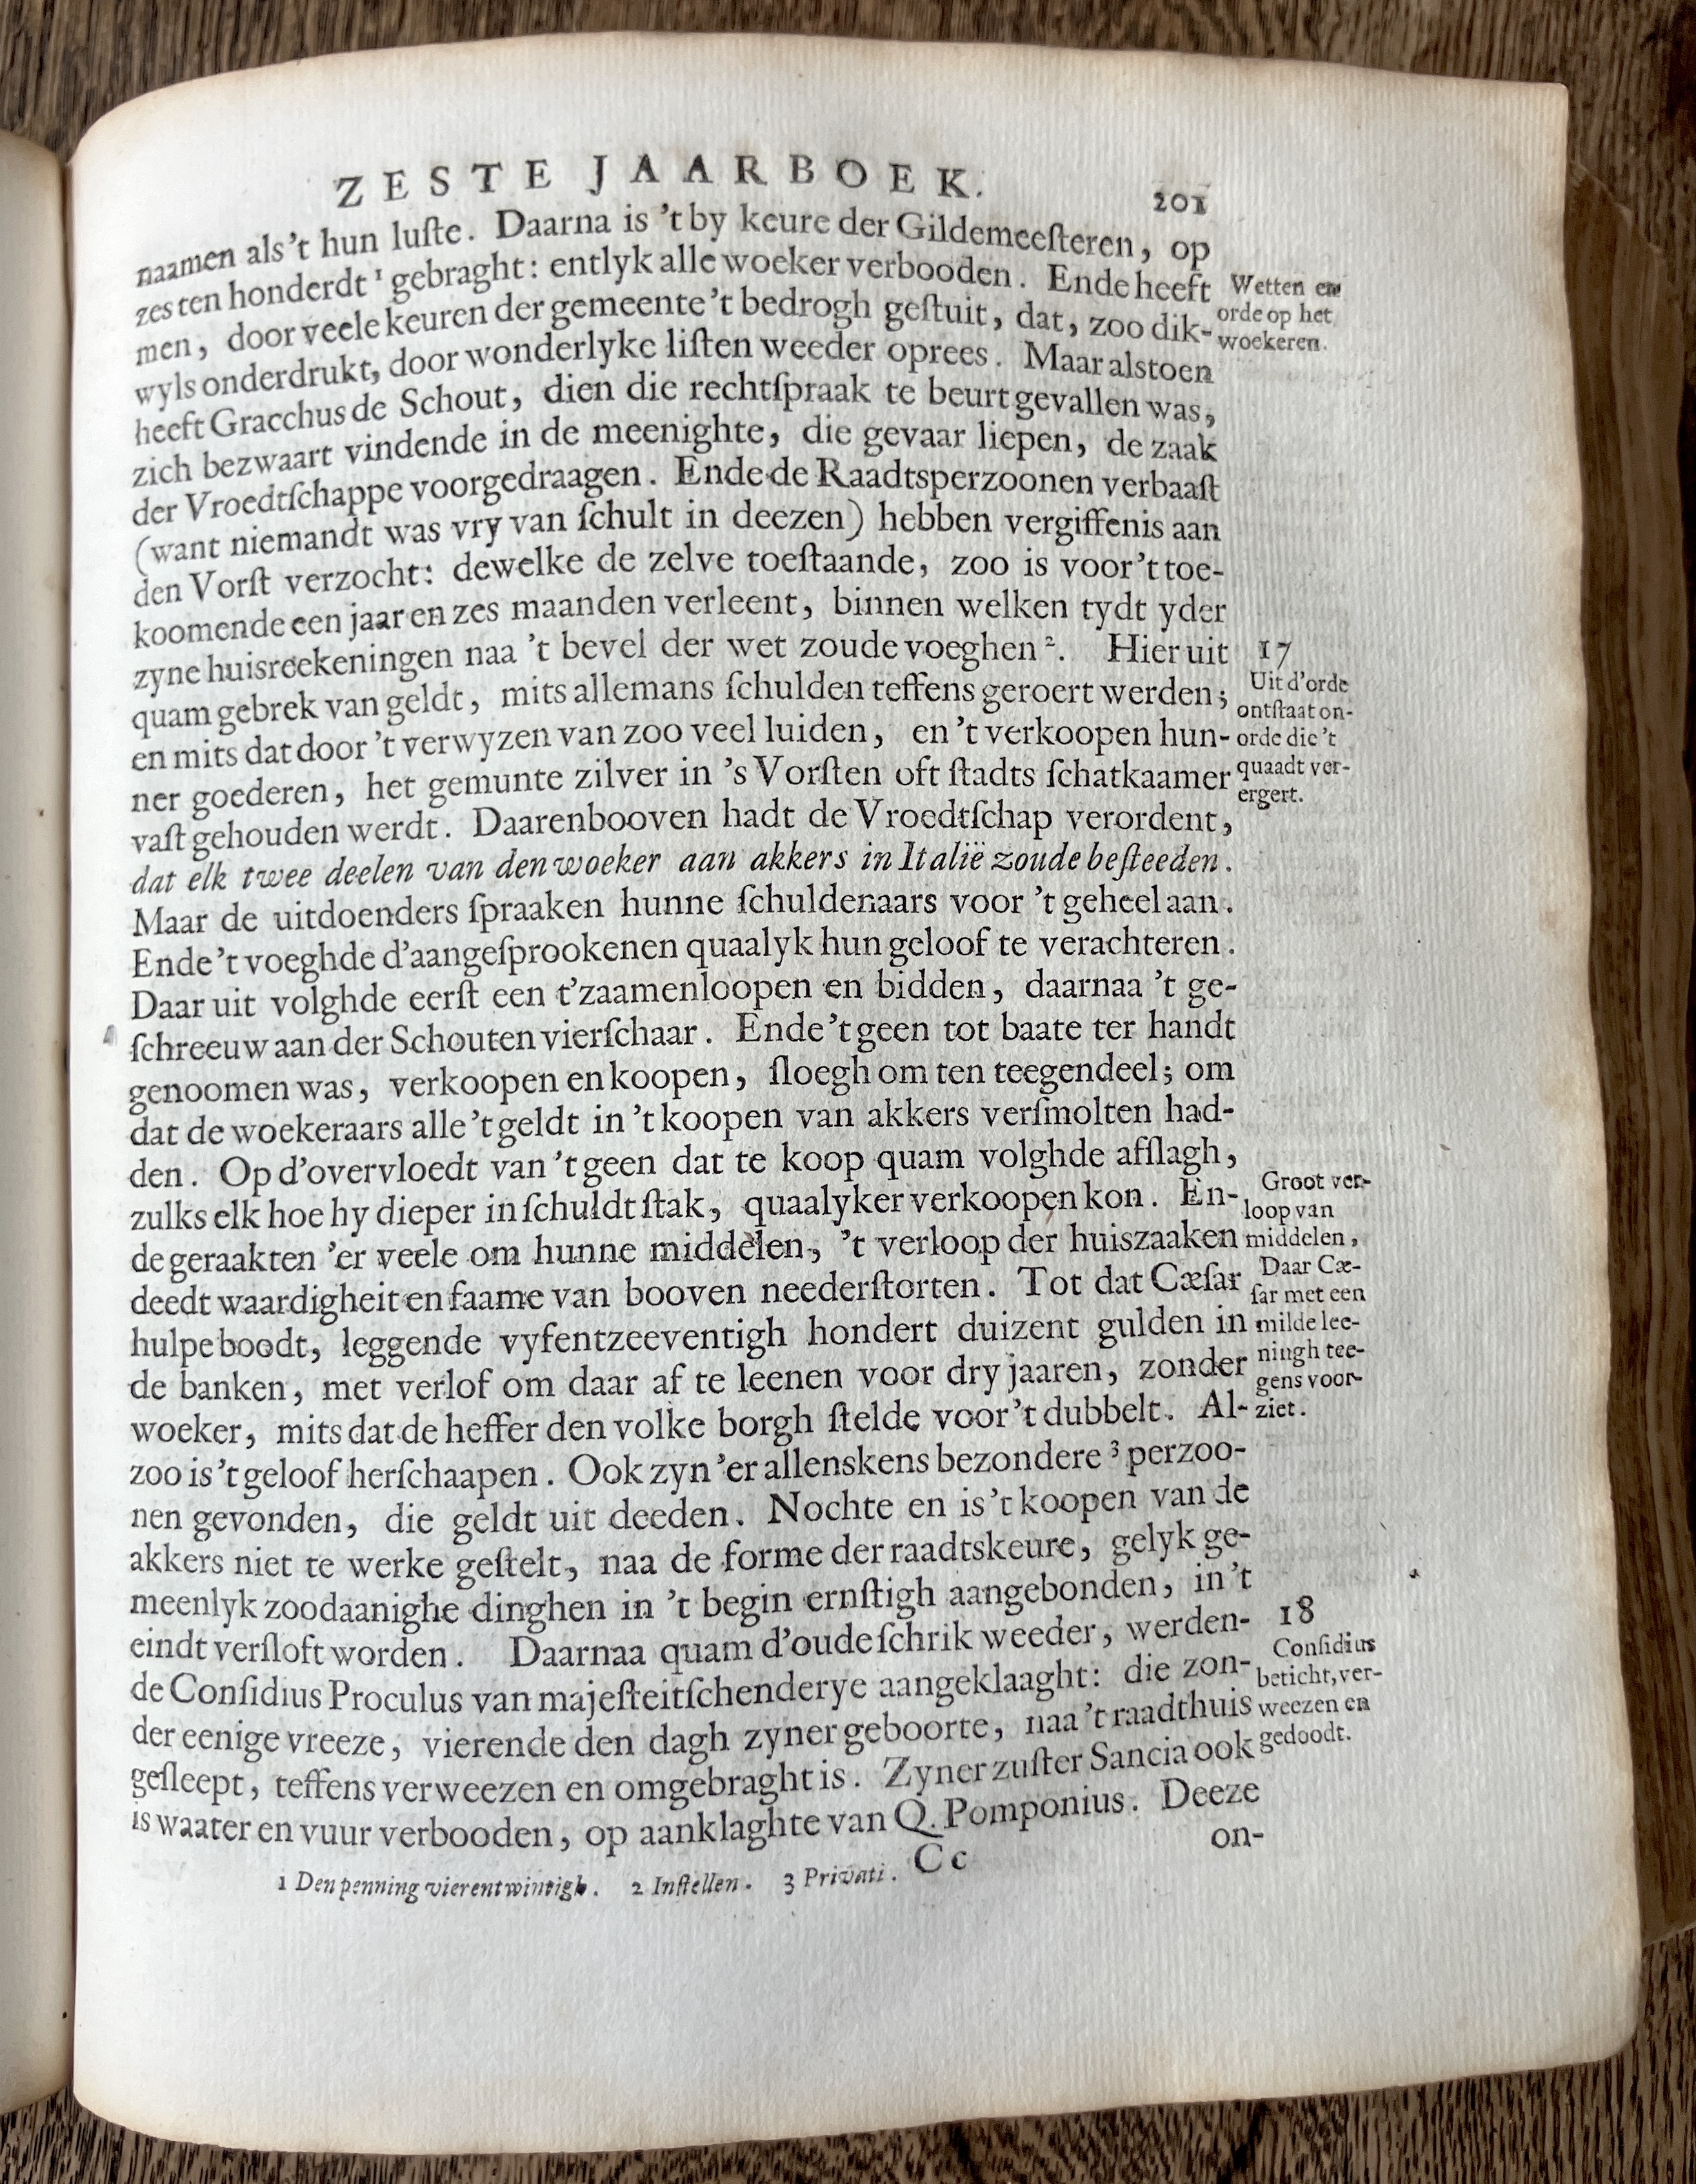 ZESTE JAARBOEK. 201
naamen als 't hun luſte. Daarna is 't by keure der Gildemeeſteren, op
zes ten honderdt ¹ gebraght: entlyk alle woeker verbooden. Ende heeft
men, door veele keuren der gemeente 't bedrogh geſtuit, dat, zoo dik-
wyls onderdrukt, door wonderlyke liſten weeder oprees. Maar alstoen
heeft Gracchus de Schout, dien die rechtſpraak te beurt gevallen was,
zich bezwaart vindende in de meenighte, die gevaar liepen, de zaak
der Vroedtſchappe voorgedraagen. Ende de Raadtsperzoonen verbaaſt
(want niemandt was vry van ſchult in deezen) hebben vergiffenis aan
den Vorſt verzocht: dewelke de zelve toeſtaande, zoo is voor 't toe-
koomende een jaar en zes maanden verleent, binnen welken tydt yder
zyne huisreekeningen naa 't bevel der wet zoude voeghen ². Hier uit
quam gebrek van geldt, mits allemans ſchulden teffens geroert werden;
en mits dat door 't verwyzen van zoo veel luiden, en 't verkoopen hun-
ner goederen, het gemunte zilver in 's Vorſten oft ſtadts ſchatkaamer
vaſt gehouden werdt. Daarenbooven hadt de Vroedtſchap verordent,
dat elk twee deelen van den woeker aan akkers in Italië zoude beſteeden.
Maar de uitdoenders ſpraaken hunne ſchuldenaars voor 't geheel aan.
Ende 't voeghde d'aangeſprookenen quaalyk hun geloof te verachteren.
Daar uit volghde eerſt een t'zaamenloopen en bidden, daarnaa 't ge-
ſchreeuw aan der Schouten vierſchaar. Ende 't geen tot baate ter handt
genoomen was, verkoopen en koopen, ſloegh om ten teegendeel; om
dat de woekeraars alle 't geldt in 't koopen van akkers verſmolten had-
den. Op d'overvloedt van 't geen dat te koop quam volghde afſlagh,
zulks elk hoe hy dieper in ſchuldt ſtak, quaalyker verkoopen kon. En-
de geraakten 'er veele om hunne middelen, 't verloop der huiszaaken
deedt waardigheit en faame van booven neederſtorten. Tot dat Cæſar
hulpe boodt, leggende vyfentzeeventigh hondert duizent gulden in
de banken, met verlof om daar af te leenen voor dry jaaren, zonder
woeker, mits dat de heffer den volke borgh ſtelde voor 't dubbelt. Al-
zoo is 't geloof herſchaapen. Ook zyn 'er allenskens bezondere ³ perzoo-
nen gevonden, die geldt uit deeden. Nochte en is 't koopen van de
akkers niet te werke geſtelt, naa de forme der raadtskeure, gelyk ge-
meenlyk zoodaanighe dinghen in 't begin ernſtigh aangebonden, in 't
eindt verſloft worden. Daarnaa quam d'oude ſchrik weeder, werden-
de Conſidius Proculus van majeſteitſchenderye aangeklaaght: die zon-
der eenige vreeze, vierende den dagh zyner geboorte, naa 't raadthuis
geſleept, teffens verweezen en omgebraght is. Zyner zuſter Sancia ook
is waater en vuur verbooden, op aanklaghte van Q. Pomponius. Deeze
on-
Cc
1 Den penning vierentwintigh. 2 Inſtellen. 3 Privati.
Wetten en
orde op het
woekeren.
17
Uit d'orde
ontſtaat on-
orde die 't
quaadt ver-
ergert.
Groot ver-
loop van
middelen,
Daar Cæ-
ſar met een
milde lee-
ningh tee-
gens voor-
ziet.
18
Conſidius
beticht, ver-
weezen en
gedoodt.